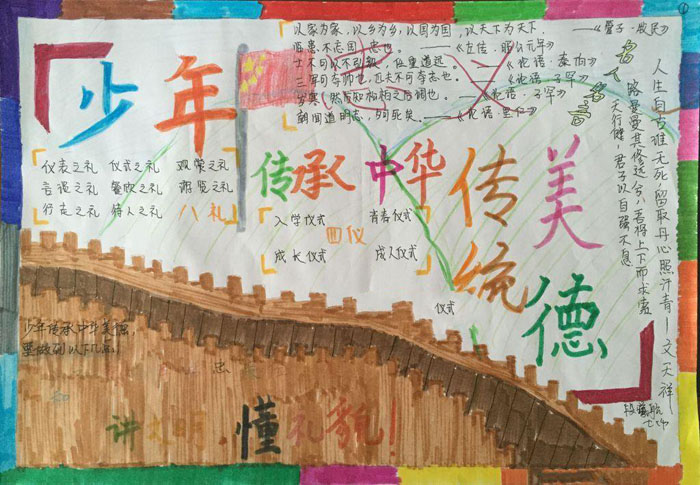 以家为家，以乡为乡，以国为国，以天下为天下.——《管子·牧民》
临患不忘国，忠也。——《左传·昭公元年》
士不可以不弘毅，任重道远。——《论语·泰伯》
三军可夺帅也，匹夫不可夺志也。——《论语·子罕》
岁寒，然后知松柏之后凋也。——《论语·子罕》
朝闻道，夕死矣。——《论语·里仁》
名人名言
人生自古谁无死，留取丹心照汗青——文天祥
路曼曼其修远兮，吾将上下而求索
天行健，君子以自强不息
少年
传承中华
传统
美德
仪表之礼 仪式之礼 观赏之礼
言谈之礼 餐饮之礼 游览之礼
行走之礼 待人之礼 八礼
入学仪式 青春仪式
四仪
成长仪式 成人仪式
仪式
少年传承中华美德
要做到以下几点！
忠
讲文
懂礼貌！